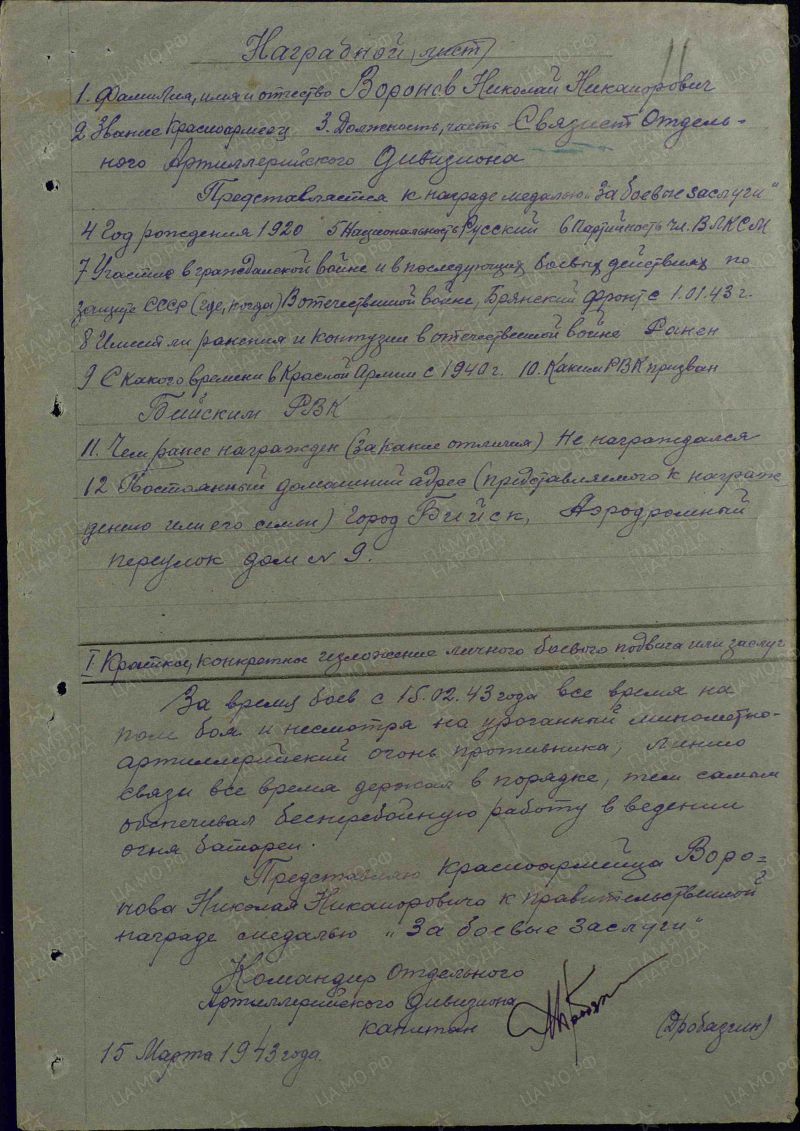 11
Наградной лист
1. Фамилия, имя и отчество Воронов Николай Никанорович
2 Звание Красноармеец 3. Должность, часть Связист Отдель-
ного Артиллерийского Дивизиона
Представляется к награде медалью „За боевые заслуги"
4 Год рождения 1920 5 Национальность Русский 6 Партийность чл. ВЛКСМ
7 Участие в гражданской войне и в последующих боевых действиях по
защите СССР (где, когда) В отечественной войне, Брянский фронт с 1.01.43 г.
8 Имеет ли ранения и контузии в отечественной войне Ранен
9 С какого времени в Красной Армии с 1940 г. 10. Каким РВК призван
Бийским РВК
11. Чем ранее награжден (за какие отличия) Не награждался
12 Постоянный домашний адрес (представляемого к награж-
дению или его семьи) Город Бийск, Аэродромный
переулок дом № 9.
I Краткое, конкретное изложение личного боевого подвига или заслуг
За время боев с 15.02.43 года все время на
поле боя и несмотря на ураганный минометно-
артиллерийский огонь противника, линию
связи все время держал в порядке, тем самым
обспечивал бесперебойную работу в ведении
огня батареи.
Представляю красноармейца Воро-
нова Николая Никаноровича к правительственной
награде медалью „За боевые заслуги"
Командир Отдельного
Артиллерийского Дивизиона
капитан (Дробазгин)
15 Марта 1943 года.